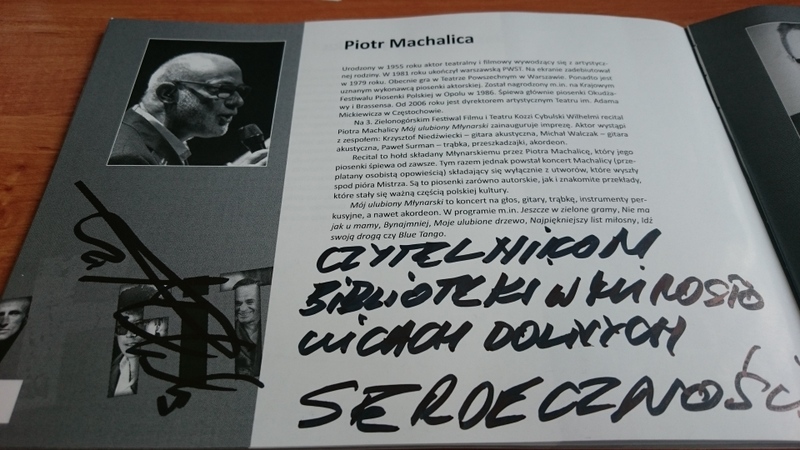 Piotr Machalica
Urodzony w 1955 roku aktor teatralny i filmowy wywodzący się z artystycz-
nej rodziny. W 1981 roku ukończył warszawską PWST. Na ekranie zadebiutował
w 1979 roku. Obecnie gra w Teatrze Powszechnym w Warszawie. Ponadto jest
uznanym wykonawcą piosenki aktorskiej. Został nagrodzony m.in. na Krajowym
Festiwalu Piosenki Polskiej w Opolu w 1986. Śpiewa głównie piosenki Okudża-
wy i Brassensa. Od 2006 roku jest dyrektorem artystycznym Teatru im. Adama
Mickiewicza w Częstochowie.
Na 3. Zielonogórskim Festiwal Filmu i Teatru Kozzi Cybulski Wilhelmi recital
Piotra Machalicy Mój ulubiony Młynarski zainauguruje imprezę. Aktor wystąpi
z zespołem: Krzysztof Niedźwiecki – gitara akustyczna, Michał Walczak – gitara
akustyczna, Paweł Surman – trąbka, przeszkadzajki, akordeon.
Recital to hołd składany Młynarskiemu przez Piotra Machalicę, który jego
piosenki śpiewa od zawsze. Tym razem jednak powstał koncert Machalicy (prze-
platany osobistą opowieścią) składający się wyłącznie z utworów, które wyszły
spod pióra Mistrza. Są to piosenki zarówno autorskie, jak i znakomite przekłady,
które stały się ważną częścią polskiej kultury.
Mój ulubiony Młynarski to koncert na głos, gitary, trąbkę, instrumenty per-
kusyjne, a nawet akordeon. W programie m.in. Jeszcze w zielone gramy, Nie ma
jak u mamy, Bynajmniej, Moje ulubione drzewo, Najpiękniejszy list miłosny, Idź
swoją drogą czy Blue Tango.
CZYTELNIKOM
BIBLIOTEKI W MIROSTO
WICACH DOLNYCH
SERDECZNOŚC